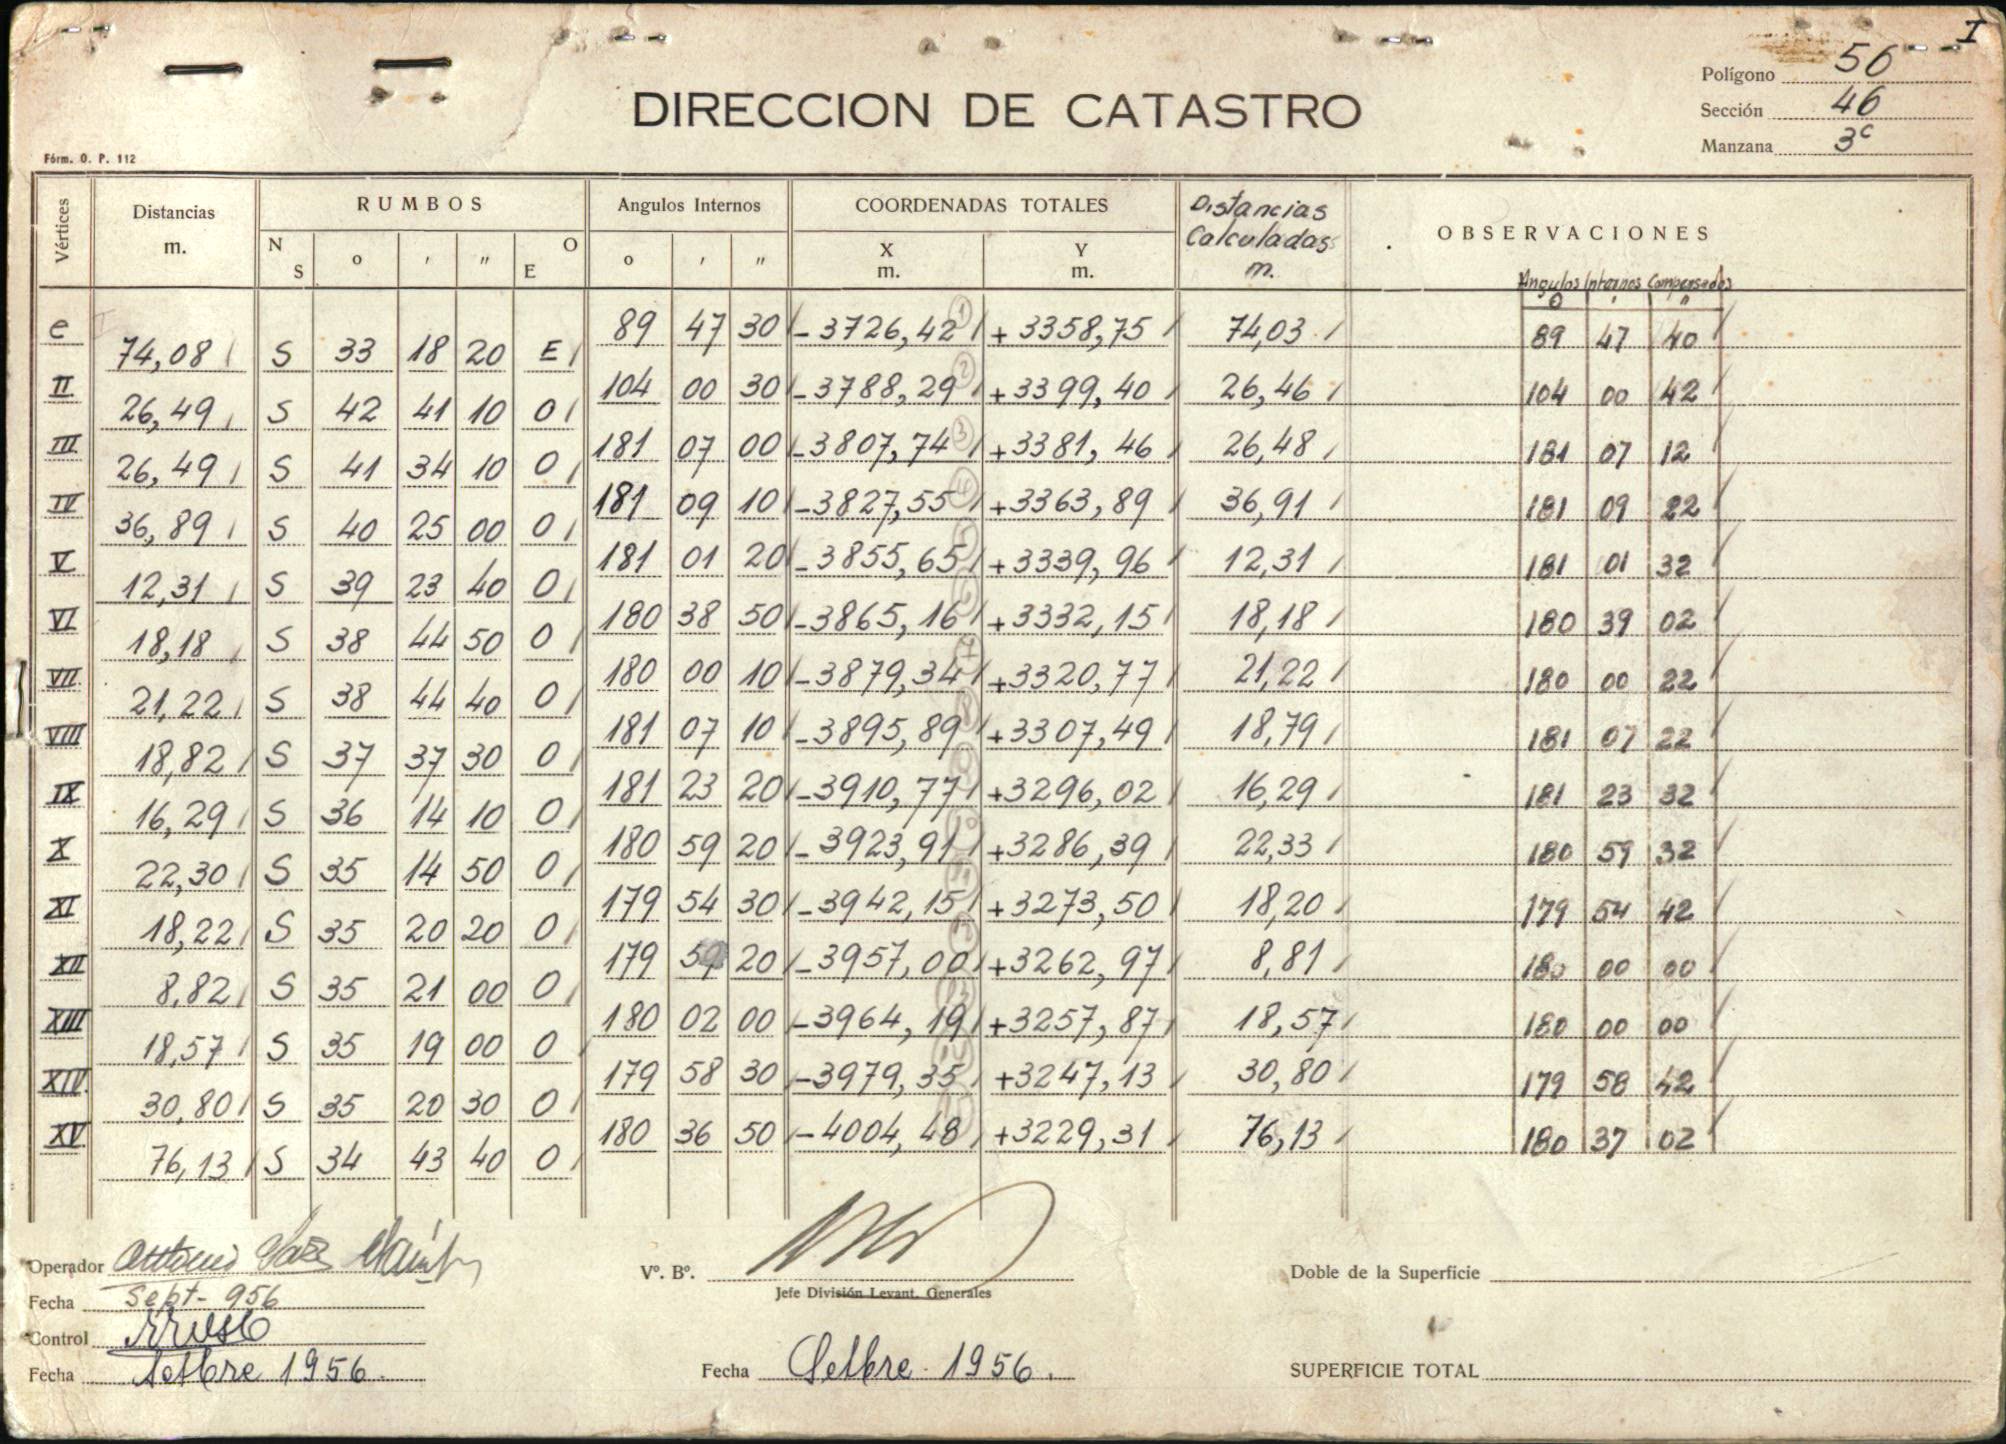 I
Polígono 56
DIRECCION DE CATASTRO
Sección 46
Manzana 3c
Fórm. O. P. 112
Vértices Distancias m. RUMBOS N S o ' " O E Angulos Internos o ' " COORDENADAS TOTALES X m. Y m. Distancias Calculadas m. OBSERVACIONES
Angulos Internos Compensados
o ' "
e 89 47 30 -3726,42 1 +3358,75 74,03 89 47 40
74,08 S 33 18 20 E
II 104 00 30 -3788,29 2 +3399,40 26,46 104 00 42
26,49 S 42 41 10 O
III 181 07 00 -3807,74 3 +3381,46 26,48 181 07 12
26,49 S 41 34 10 O
IV 181 09 10 -3827,55 4 +3363,89 36,91 181 09 22
36,89 S 40 25 00 O
V 181 01 20 -3855,65 +3339,96 12,31 181 01 32
12,31 S 39 23 40 O
VI 180 38 50 -3865,16 +3332,15 18,18 180 39 02
18,18 S 38 44 50 O
VII 180 00 10 -3879,34 +3320,77 21,22 180 00 22
21,22 S 38 44 40 O
VIII 181 07 10 -3895,89 +3307,49 18,79 181 07 22
18,82 S 37 37 30 O
IX 181 23 20 -3910,77 +3296,02 16,29 181 23 32
16,29 S 36 14 10 O
X 180 59 20 -3923,91 +3286,39 22,33 180 59 32
22,30 S 35 14 50 O
XI 179 54 30 -3942,15 +3273,50 18,20 179 54 42
18,22 S 35 20 20 O
XII 179 59 20 -3957,00 +3262,97 8,81 180 00 00
8,82 S 35 21 00 O
XIII 180 02 00 -3964,19 +3257,87 18,57 180 00 00
18,57 S 35 19 00 O
XIV 179 58 30 -3979,35 +3247,13 30,80 179 58 42
30,80 S 35 20 30 O
XV 180 36 50 -4004,48 +3229,31 76,13 180 37 02
76,13 S 34 43 40 O
Operador Antonio
Vº. Bº.
Doble de la Superficie
Fecha Sept-956
Jefe División Levant. Generales
Control
Fecha Setbre 1956.
Fecha Setbre. 1956.
SUPERFICIE TOTAL